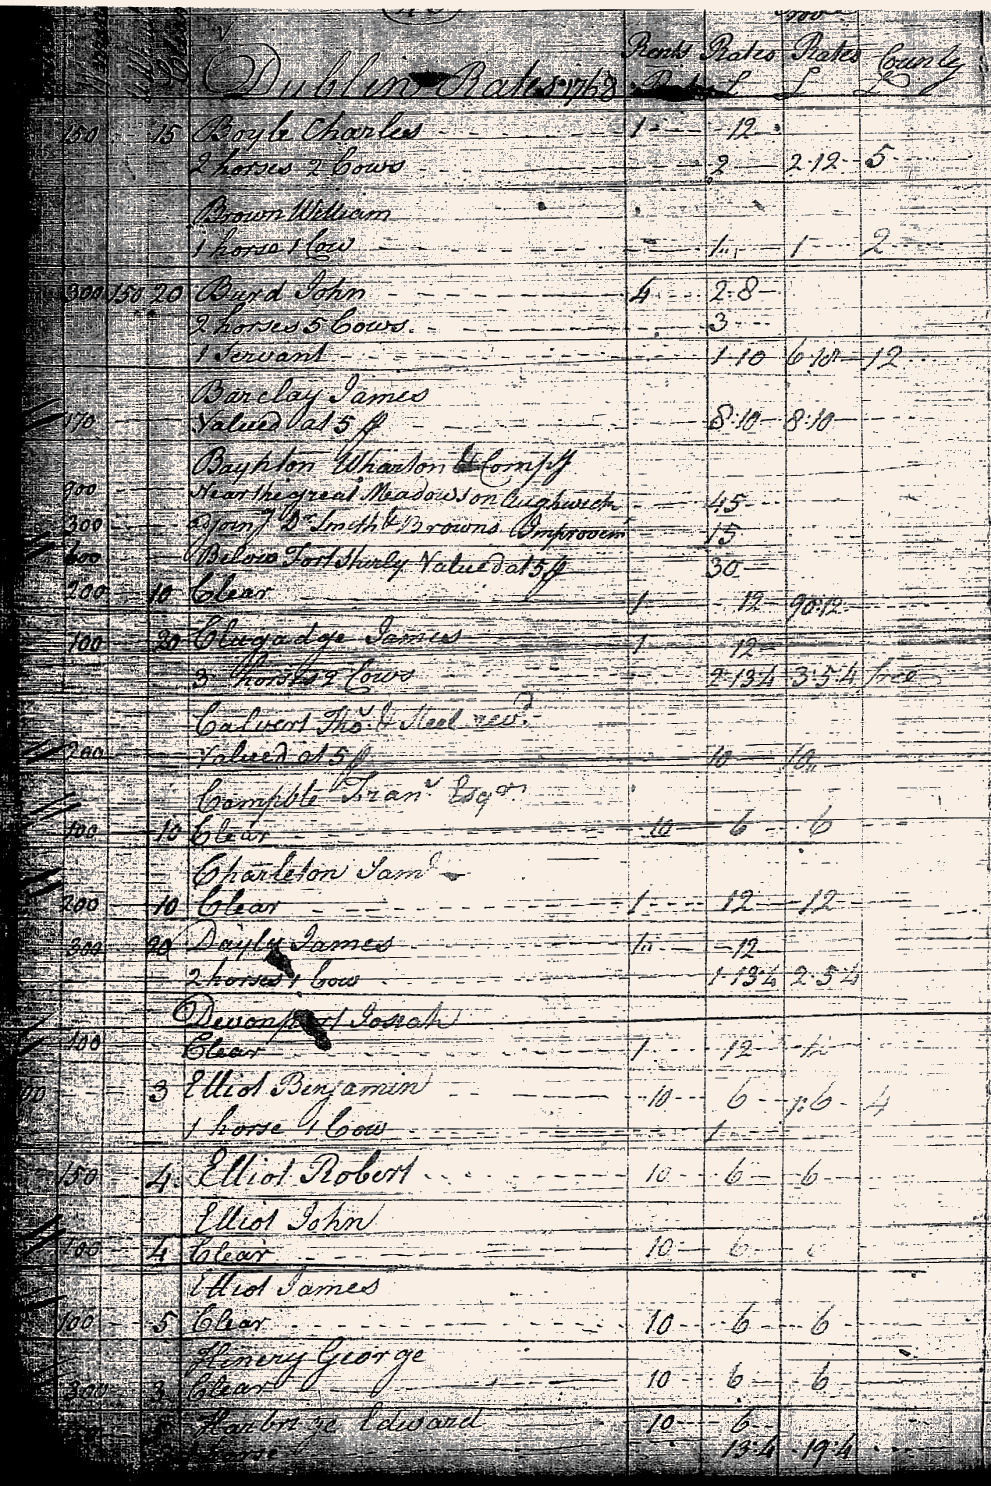 Prov
Rents Rates Rates County
Dublin Rates 1768 £ £ £
150 15 Boyle Charles 1 12
2 horses 2 Cows 2 2.12 5
Brown William
1 horse 1 Cow 1 1 2
300 150 20 Burd John 4 2.8
2 horses 5 Cows 3
1 Servant 1.10 6.18 12
Barclay James
170 Valued at 5 8.10 8.10
Baynton Wharton & Comp
900 Near the great Meadows on Aughwick 45
300 Smith & Browns Improvm 15
600 Below Fort Shirly Valued at 5 30
200 10 Clear 1 12 90.12
100 20 Clugadge James 1 12
3 horses 2 Cows 2.13.4 3.5.4 free
Calvert Tho. & Steel
200 Valued at 5 10 10
Campble Fran Esqr
100 10 Clear 10 6 6
Charleton Sam
200 10 Clear 1 12 12
300 20 Dayly James 1 12
2 horses 1 Cow 1.13.4 2.5.4
Devonport Josiah
100 Clear 1 12
3 Elliot Benjamin 10 6 1.6 4
1 horse 1 Cow 1
150 4 Elliot Robert 10 6 6
Elliot John
100 4 Clear 10 6 6
Elliot James
100 5 Clear 10 6 6
Henery George
300 3 Clear 10 6 6
Edward 10 6
horse 13.4 19.4